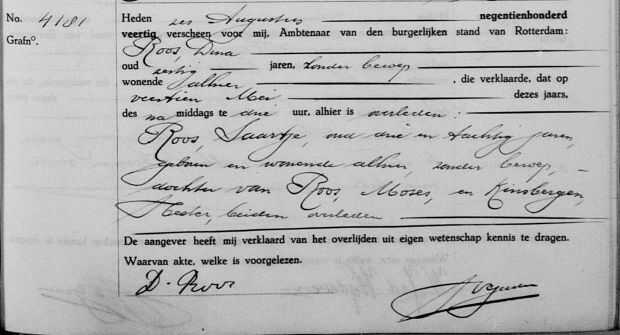 No. 4181
Grafno.
Heden zes Augustus negentienhonderd
veertig verscheen voor mij, Ambtenaar van den burgerlijken stand van Rotterdam:
Roos, Dina
oud zestig jaren, zonder beroep
wonende alhier, die verklaarde, dat op
veertien Mei dezes jaars,
des na middags te drie uur, alhier is overleden:
Roos, Saartje, oud drie en tachtig jaren,
geboren en wonende alhier, zonder beroep,
dochter van Roos, Moses, en Kinsbergen,
Hester, beiden overleden
De aangever heeft mij verklaard van het overlijden uit eigen wetenschap kennis te dragen.
Waarvan akte, welke is voorgelezen.
D. Roos